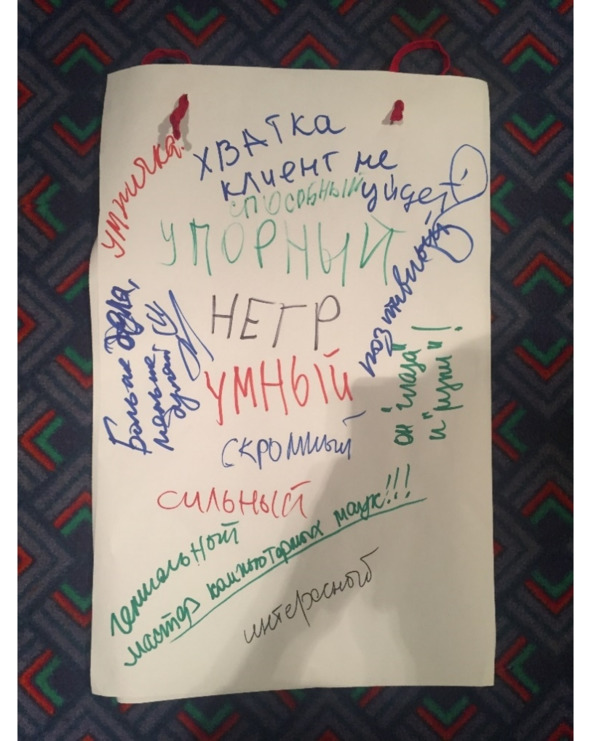 умничка
ХВАТКА
КЛИЕНТ не
уйдёт
способный
УПОРНЫЙ
позитивный
НЕГР
Больше дела,
меньше
думай
УМНЫЙ
он "глаза"
и "руки"!
СКРОМНЫЙ
СИЛЬНЫЙ
гениальный
мастер компьютерных наук!!!
интересный